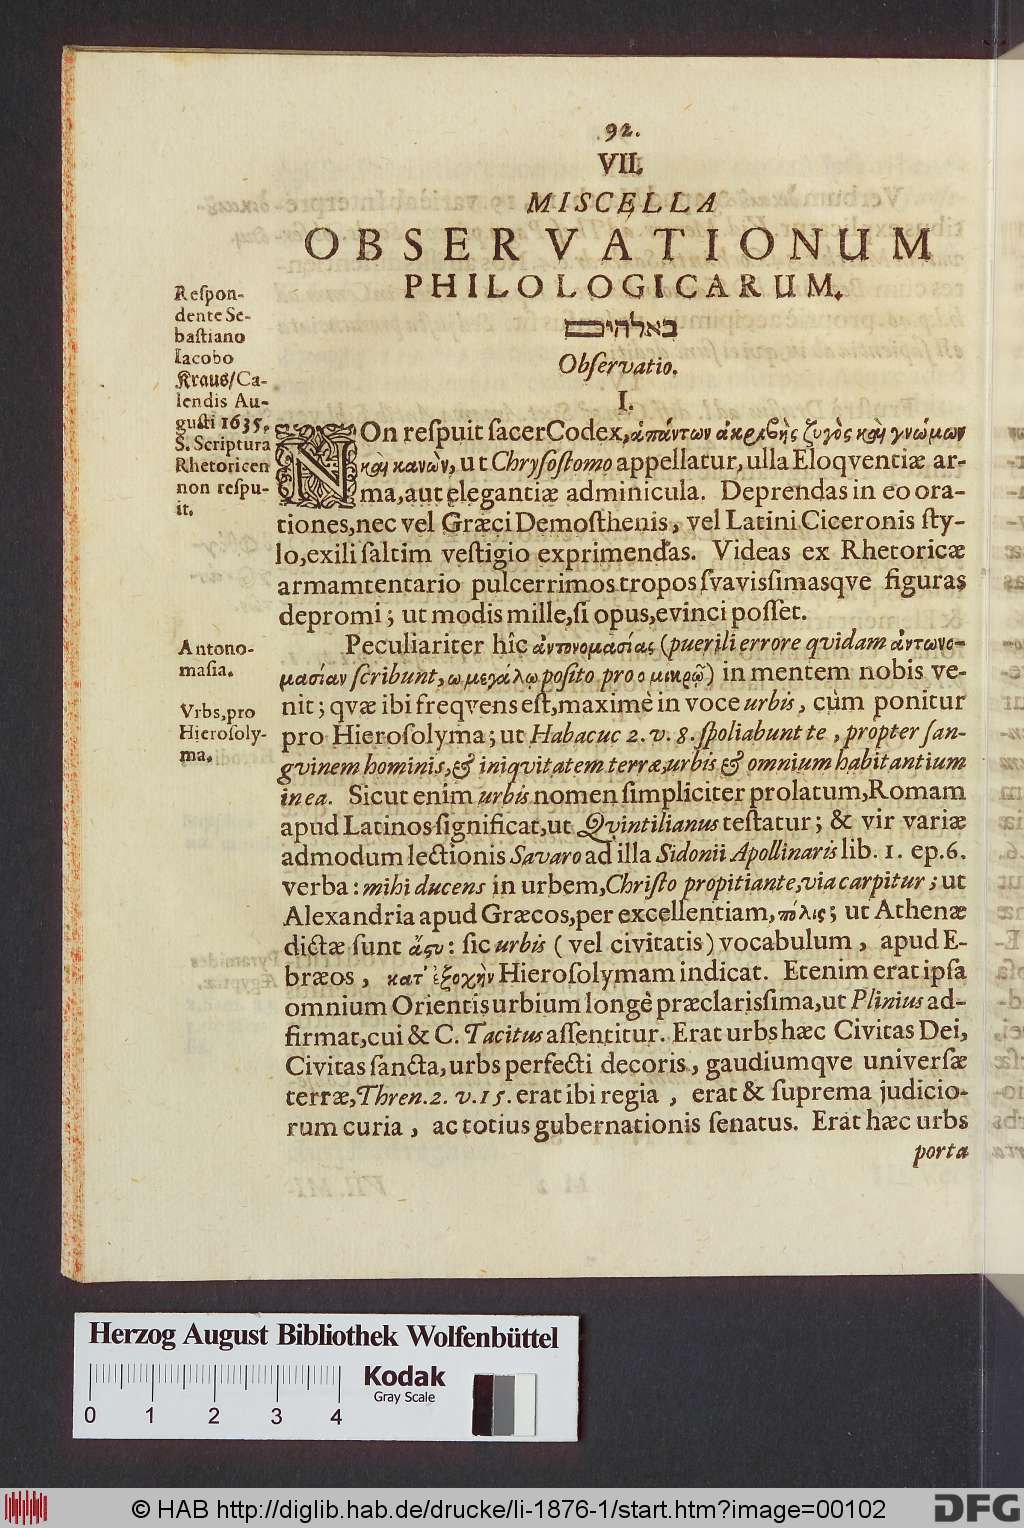 92.
VII.
MISCELLA
OBSERVATIONUM
PHILOLOGICARUM.
באלהים
Observatio.
I.
Respon-
dente Se-
bastiano
Iacobo
Kraus/Ca-
lendis Au-
gusti 1635.
S. Scriptura
Rhetoricen
non respu-
it.
NOn respuit sacer Codex, ἁπάντων ἀκριβὴς ζυγὸς καὶ γνώμων
καὶ κανὼν, ut Chrysostomo appellatur, ulla Eloqventiæ ar-
ma, aut elegantiæ adminicula. Deprendas in eo ora-
tiones, nec vel Græci Demosthenis, vel Latini Ciceronis sty-
lo, exili saltim vestigio exprimendas. Videas ex Rhetoricæ
armamtentario pulcerrimos tropos svavissimasqve figuras
depromi; ut modis mille, si opus, evinci posset.
Antono-
masia.
Vrbs, pro
Hierosoly-
ma.
Peculiariter hîc ἀντονομασίας (puerili errore qvidam ἀντωνο-
μασίαν scribunt, ω μεγάλῳ posito pro ο μικρῷ) in mentem nobis ve-
nit; qvæ ibi freqvens est, maximè in voce urbis, cùm ponitur
pro Hierosolyma; ut Habacuc 2. v. 8. spoliabunt te, propter san-
gvinem hominis, & iniqvitatem terræ, urbis & omnium habitantium
in ea. Sicut enim urbis nomen simpliciter prolatum, Romam
apud Latinos significat, ut Qvintilianus testatur; & vir variæ
admodum lectionis Savaro ad illa Sidonii Apollinaris lib. 1. ep. 6.
verba: mihi ducens in urbem, Christo propitiante, via carpitur; ut
Alexandria apud Græcos, per excellentiam, πόλις; ut Athenæ
dictæ sunt ἄστυ: sic urbis (vel civitatis) vocabulum, apud E-
bræos, κατ' ἐξοχὴν Hierosolymam indicat. Etenim erat ipsa
omnium Orientis urbium longè præclarissima, ut Plinius ad-
firmat, cui & C. Tacitus assentitur. Erat urbs hæc Civitas Dei,
Civitas sancta, urbs perfecti decoris, gaudiumqve universæ
terræ, Thren. 2. v. 15. erat ibi regia, erat & suprema judicio-
rum curia, ac totius gubernationis senatus. Erat hæc urbs
porta
Herzog August Bibliothek Wolfenbüttel
Kodak
Gray Scale
0 1 2 3 4
© HAB http://diglib.hab.de/drucke/li-1876-1/start.htm?image=00102
DFG